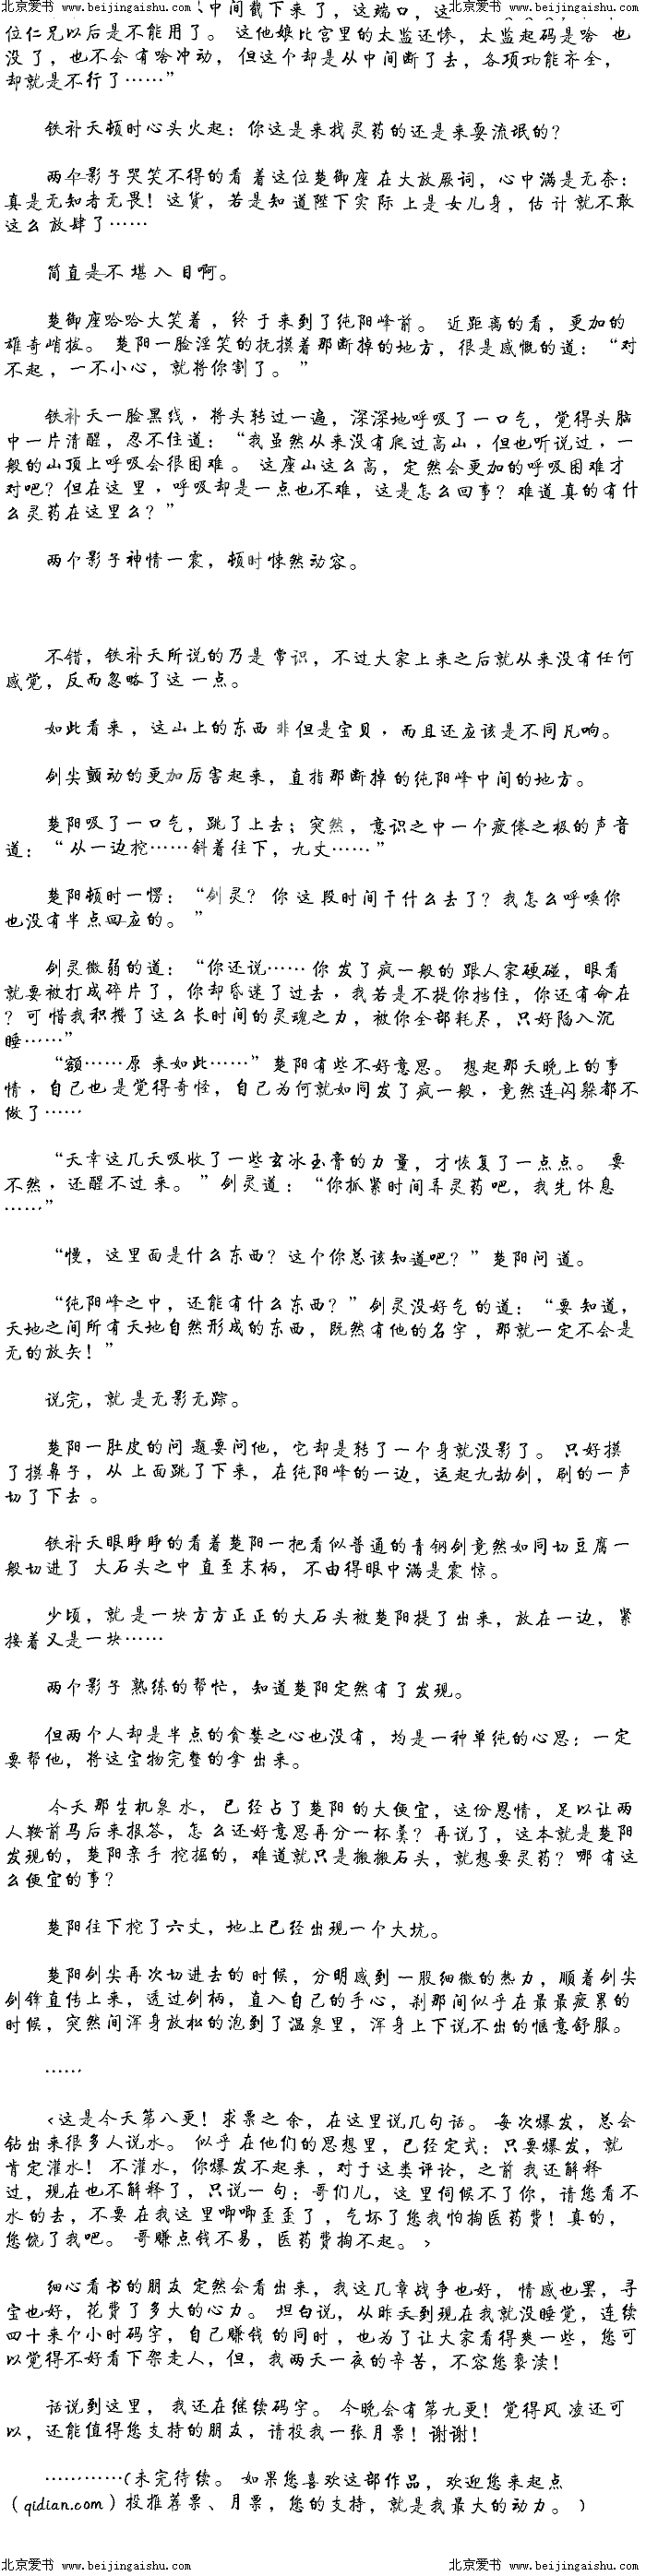 北京爱书 www.beijingaishu.com 北京爱书 www.beijingaishu.com
中间截下来了，这端口，这
位仁兄以后是不能用了。 这他娘比宫里的太监还惨，太监起码是啥 也
没了，也不会有啥冲动，但这个却是从中间断了去，各项功能齐全，
却就是不行了……”
铁补天顿时心头火起：你这是来找灵药的还是来耍流氓的？
两个影子哭笑不得的看着这位楚御座在大放厥词，心中满是无奈：
真是无知者无畏！这货，若是知道陛下实际上是女儿身，估计就不敢
这么放肆了……
简直是不堪入目啊。
楚御座哈哈大笑着，终于来到了纯阳峰前。 近距离的看，更加的
雄奇峭拔。 楚阳一脸淫笑的抚摸着那断掉的地方，很是感慨的道：“对
不起，一不小心，就将你割了。 ”
铁补天一脸黑线，将头转过一遍，深深地呼吸了一口气，觉得头脑
中一片清醒，忍不住道：“我虽然从来没有爬过高山，但也听说过，一
般的山顶上呼吸会很困难。 这座山这么高，定然会更加的呼吸困难才
对吧？但在这里，呼吸却是一点也不难，这是怎么回事？难道真的有什
么灵药在这里么？”
两个影子神情一震，顿时悚然动容。
不错，铁补天所说的乃是常识，不过大家上来之后就从来没有任何
感觉，反而忽略了这一点。
如此看来，这山上的东西非但是宝贝，而且还应该是不同凡响。
剑尖颤动的更加厉害起来，直指那断掉的纯阳峰中间的地方。
楚阳吸了一口气，跳了上去；突然，意识之中一个疲倦之极的声音
道：“从一边挖……斜着往下，九丈……”
楚阳顿时一愣：“剑灵？你这段时间干什么去了？我怎么呼唤你
也没有半点回应的。 ”
剑灵微弱的道：“你还说……你发了疯一般的跟人家硬碰，眼看
就要被打成碎片了，你却昏迷了过去，我若是不提你挡住，你还有命在
？可惜我积攒了这么长时间的灵魂之力，被你全部耗尽，只好陷入沉
睡……”
“额……原来如此……”楚阳有些不好意思。 想起那天晚上的事
情，自己也是觉得奇怪，自己为何就如同发了疯一般，竟然连闪躲都不
做了……
“天幸这几天吸收了一些玄冰玉膏的力量，才恢复了一点点。 要
不然，还醒不过来。 ”剑灵道：“你抓紧时间弄灵药吧，我先休息
……”
“慢，这里面是什么东西？这个你总该知道吧？”楚阳问道。
“纯阳峰之中，还能有什么东西？”剑灵没好气的道：“要知道，
天地之间所有天地自然形成的东西，既然有他的名字，那就一定不会是
无的放矢！”
说完，就是无影无踪。
楚阳一肚皮的问题要问他，它却是转了一个身就没影了。 只好摸
了摸鼻子，从上面跳了下来，在纯阳峰的一边，运起九劫剑，刷的一声
切了下去。
铁补天眼睁睁的看着楚阳一把看似普通的青钢剑竟然如同切豆腐一
般切进了 大石头之中直至末柄，不由得眼中满是震惊。
少顷，就是一块方方正正的大石头被楚阳提了出来，放在一边，紧
接着又是一块……
两个影子熟练的帮忙，知道楚阳定然有了发现。
但两个人却是半点的贪婪之心也没有，均是一种单纯的心思：一定
要帮他，将这宝物完整的拿出来。
今天那生机泉水，已经占了楚阳的大便宜，这份恩情，足以让两
人鞍前马后来报答，怎么还好意思再分一杯羹？再说了，这本就是楚阳
发现的，楚阳亲手挖掘的，难道就只是搬搬石头，就想要灵药？哪有这
么便宜的事？
楚阳往下挖了六丈，地上已经出现一个大坑。
楚阳剑尖再次切进去的时候，分明感到一股细微的热力，顺着剑尖
剑锋直传上来，透过剑柄，直入自己的手心，刹那间似乎在最最疲累的
时候，突然间浑身放松的泡到了温泉里，浑身上下说不出的惬意舒服。
……
<这是今天第八更！求票之余，在这里说几句话。 每次爆发，总会
钻出来很多人说水。 似乎在他们的思想里，已经定式：只要爆发，就
肯定灌水！ 不灌水，你爆发不起来，对于这类评论，之前我还解释
过，现在也不解释了，只说一句：哥们儿，这里伺候不了你，请您看不
水的去，不要在我这里唧唧歪歪了，气坏了您我怕掏医药费！真的，
您饶了我吧。 哥赚点钱不易，医药费掏不起。 >
细心看书的朋友定然会看出来，我这几章战争也好，情感也罢，寻
宝也好，花费了多大的心力。 坦白说，从昨天到现在我就没睡觉，连续
四十来个小时码字，自己赚钱的同时，也为了让大家看得爽一些，您可
以觉得不好看下架走人，但，我两天一夜的辛苦，不容您亵渎！
话说到这里，我还在继续码字。 今晚会有第九更！觉得风凌还可
以，还能值得您支持的朋友，请投我一张月票！谢谢！
…………(未完待续。 如果您喜欢这部作品，欢迎您来起点
（qidian.com）投推荐票、月票，您的支持，就是我最大的动力。 ）
北京爱书 www.beijingaishu.com 北京爱书 www.beijingaishu.com